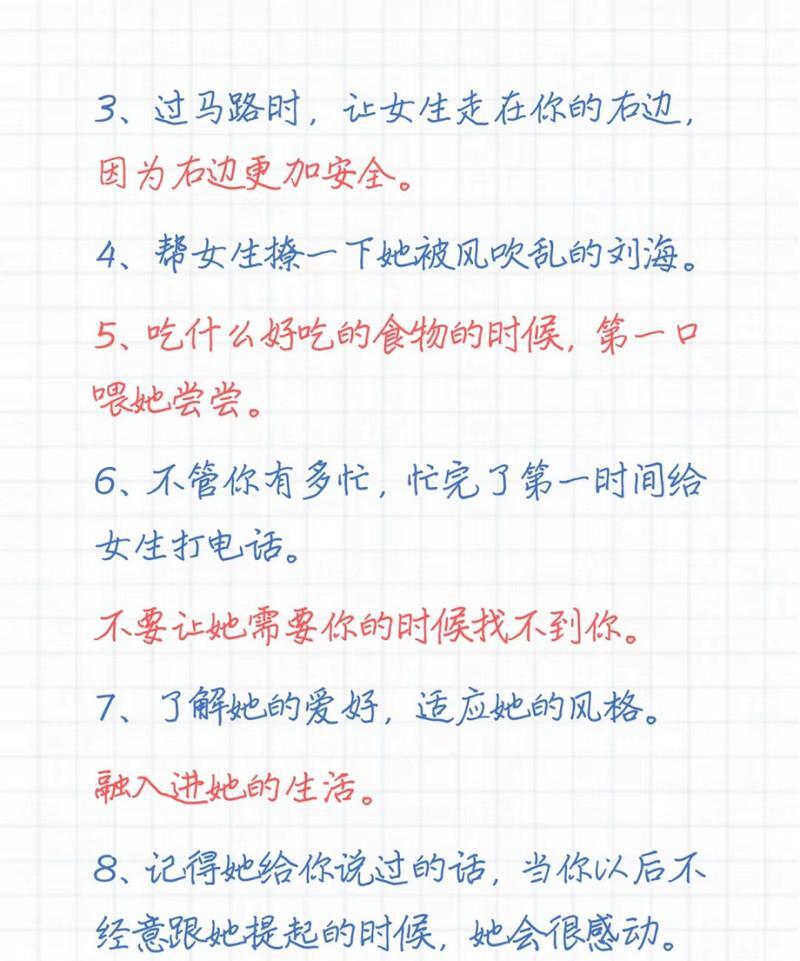 3、过马路时，让女生走在你的右边，
因为右边更加安全。
4、帮女生撩一下她被风吹乱的刘海。
5、吃什么好吃的食物的时候，第一口
喂她尝尝。
6、不管你有多忙，忙完了第一时间给
女生打电话。
不要让她需要你的时候找不到你。
7、了解她的爱好，适应她的风格。
融入进她的生活。
8、记得她给你说过的话，当你以后不
经意跟她提起的时候，她会很感动。